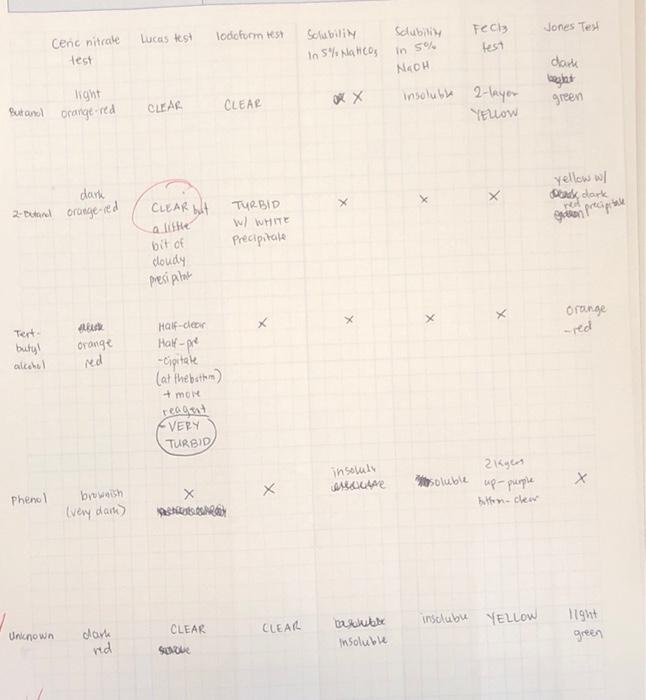 Ceric nitrate test
Lucas test
Iodoform test
Solubility in 5% NaHCO3
Solubility in 5% NaOH
FeCl3 test
Jones Test
Butanol
light orange-red
CLEAR
CLEAR
X
insoluble
2-layer YELLOW
dark green
2-butanol
dark orange-red
CLEAR but a little bit of cloudy precipitate
TURBID w/ WHITE Precipitate
X
X
X
yellow w/ dark red precipitate
Tert-butyl alcohol
orange red
Half-clear
Half-pre
-cipitate
(at the bottom)
+ more
reagent
- VERY
TURBID
X
X
X
X
orange
-red
Phenol
brownish
(very dark)
X
X
insoluble
soluble
2 layers
up-purple
bottom-clear
X
Unknown
dark
red
CLEAR
CLEAR
insoluble
insoluble
YELLOW
light
green